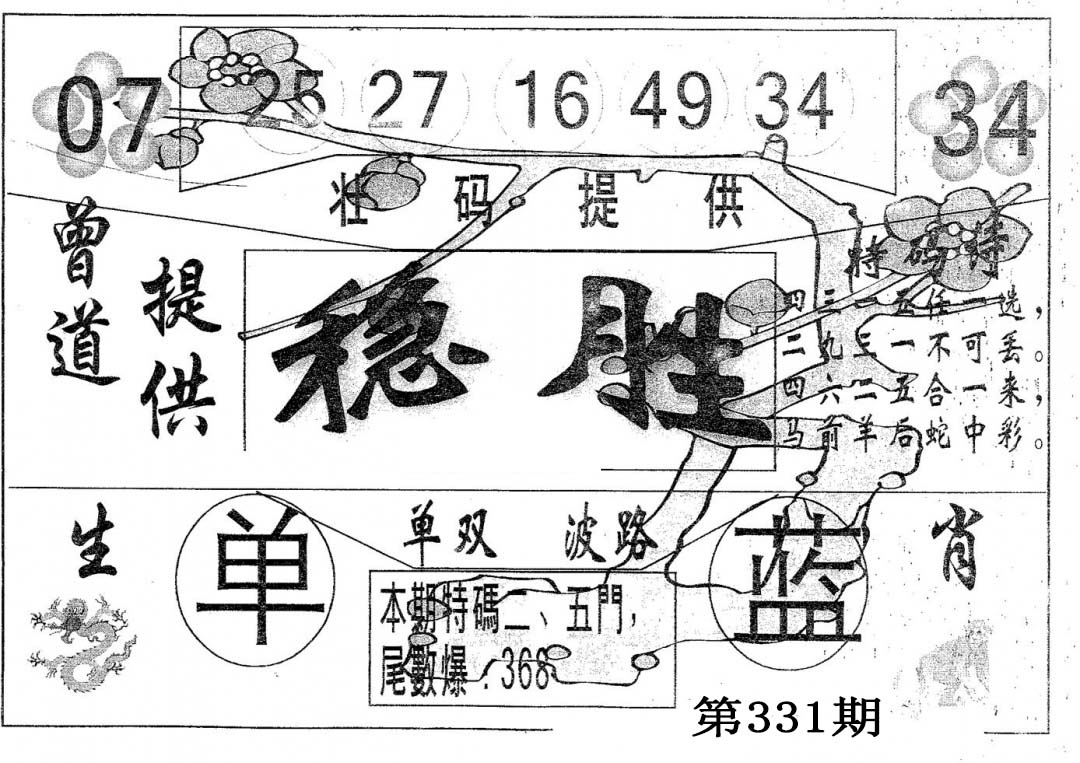 07 25 27 16 49 34 34
壮码提供
曾道
提供
稳胜
特码诗
四三一五任一选，
二九三一不可丢。
四六二五合一来，
马前羊后蛇中彩。
生肖
单
单双 波路
蓝
本期特碼二、五門，
尾數爆：368
第331期